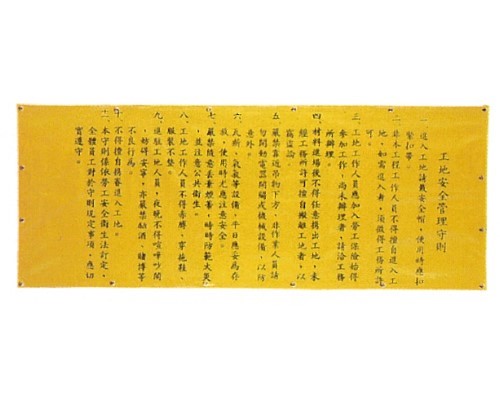 工地安全管理守則
一、進入工地請戴安全帽，使用時應扣
緊扣帶。
二、非本工程工作人員不得擅自進入工
地，如需進入者，須徵得工務所許
可。
三、工地工作人員應加入勞工保險始得
參加工作，尚未辦理者，請洽工務
所辦理。
四、材料進場後不得任意攜出工地，未
經工務所許可擅自搬離工地者，以
竊盜論。
五、嚴禁靠近吊物下方，非作業人員請
勿開動電器開關或機械設備，以防
意外。
六、瓦斯、氧氣等設備，平日應妥為存
放，使用時尤應注意安全。
七、嚴禁隨意丟棄煙蒂，時時防範火災
，並注意公共衛生。
八、工地工作人員不得赤膊、穿拖鞋
服裝不整。
九、進駐工地人員，夜晚不得喧嘩吵鬧
，妨碍安寧，亦嚴禁酗酒、賭博等
不良行為。
十、不得擅自攜眷進入工地。
十一、本守則係依勞工安全衛生法訂定，
全體員工對於守則規定事項，應切
實遵守。